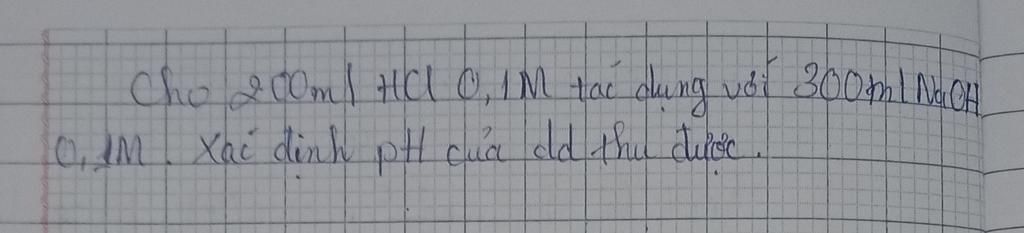 Cho 200ml HCl 0,1M tác dụng với 300ml NaOH
0,1M. Xác định pH của dd thu được.